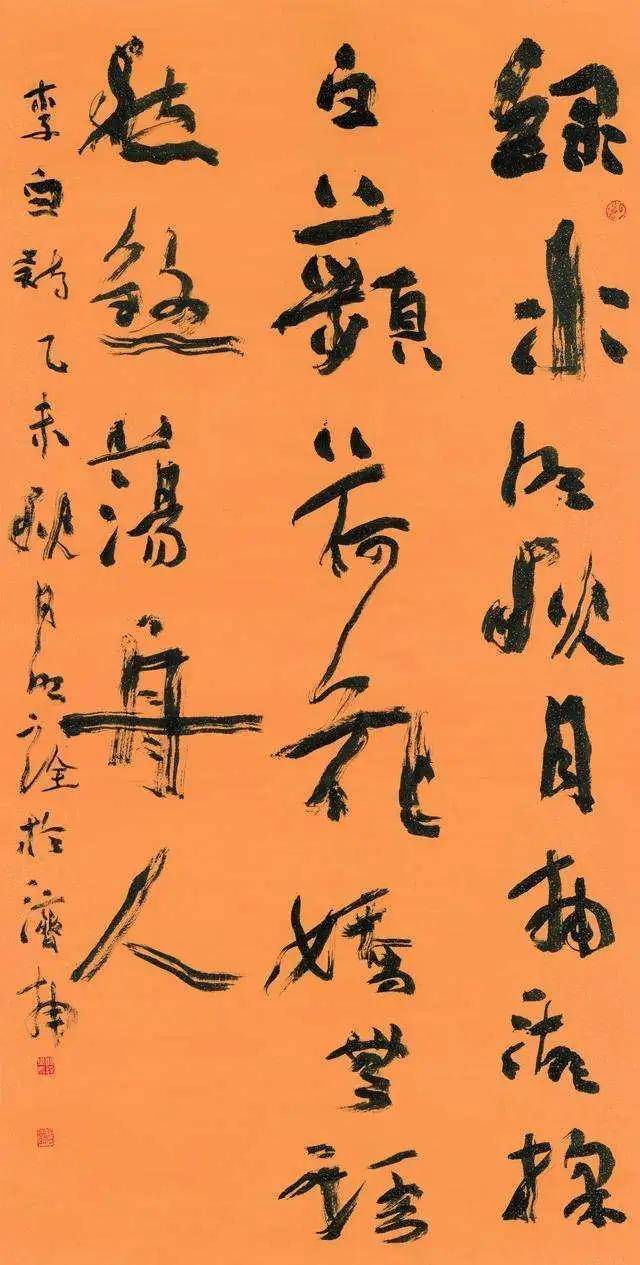 綠水明秋月南湖採
白蘋荷花嬌無語
愁煞蕩舟人
李白詩乙未秋月明詮於濟南